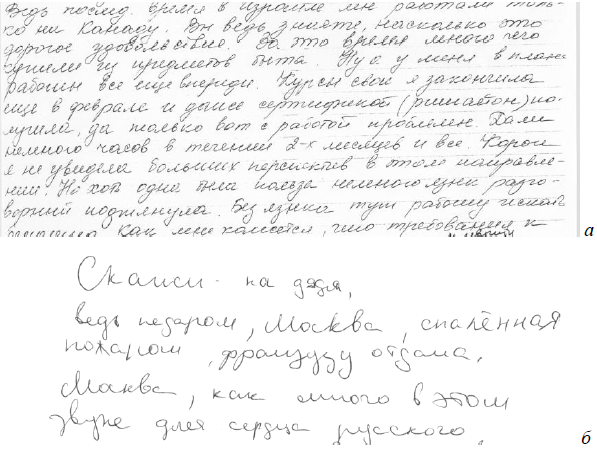 Ведь послед. время в Израиле мы работали толь-
ко на Канаду. Вы ведь знаете, насколько это
дорогое удовольствие. За это время много чего
купили из предметов быта. Ну а у меня в плане
работы все еще впереди. Курсы свои я закончила
еще в феврале и даже сертификат по-
лучила, да только вот с работой проблем. Дали
немного часов в течении 2-х месяцев и все. Короче
я не увидела больших перспектив в этом направле-
нии. Но хоть одна была польза немного язык разго-
ворный подтянула. Без языка тут работу искать
как мне кажется, что требования к
а
Скажи-ка дядя,
ведь недаром, Москва, спалённая
пожаром, французу отдана.
Маква, как много в этом
звуке для сердца русского.
б